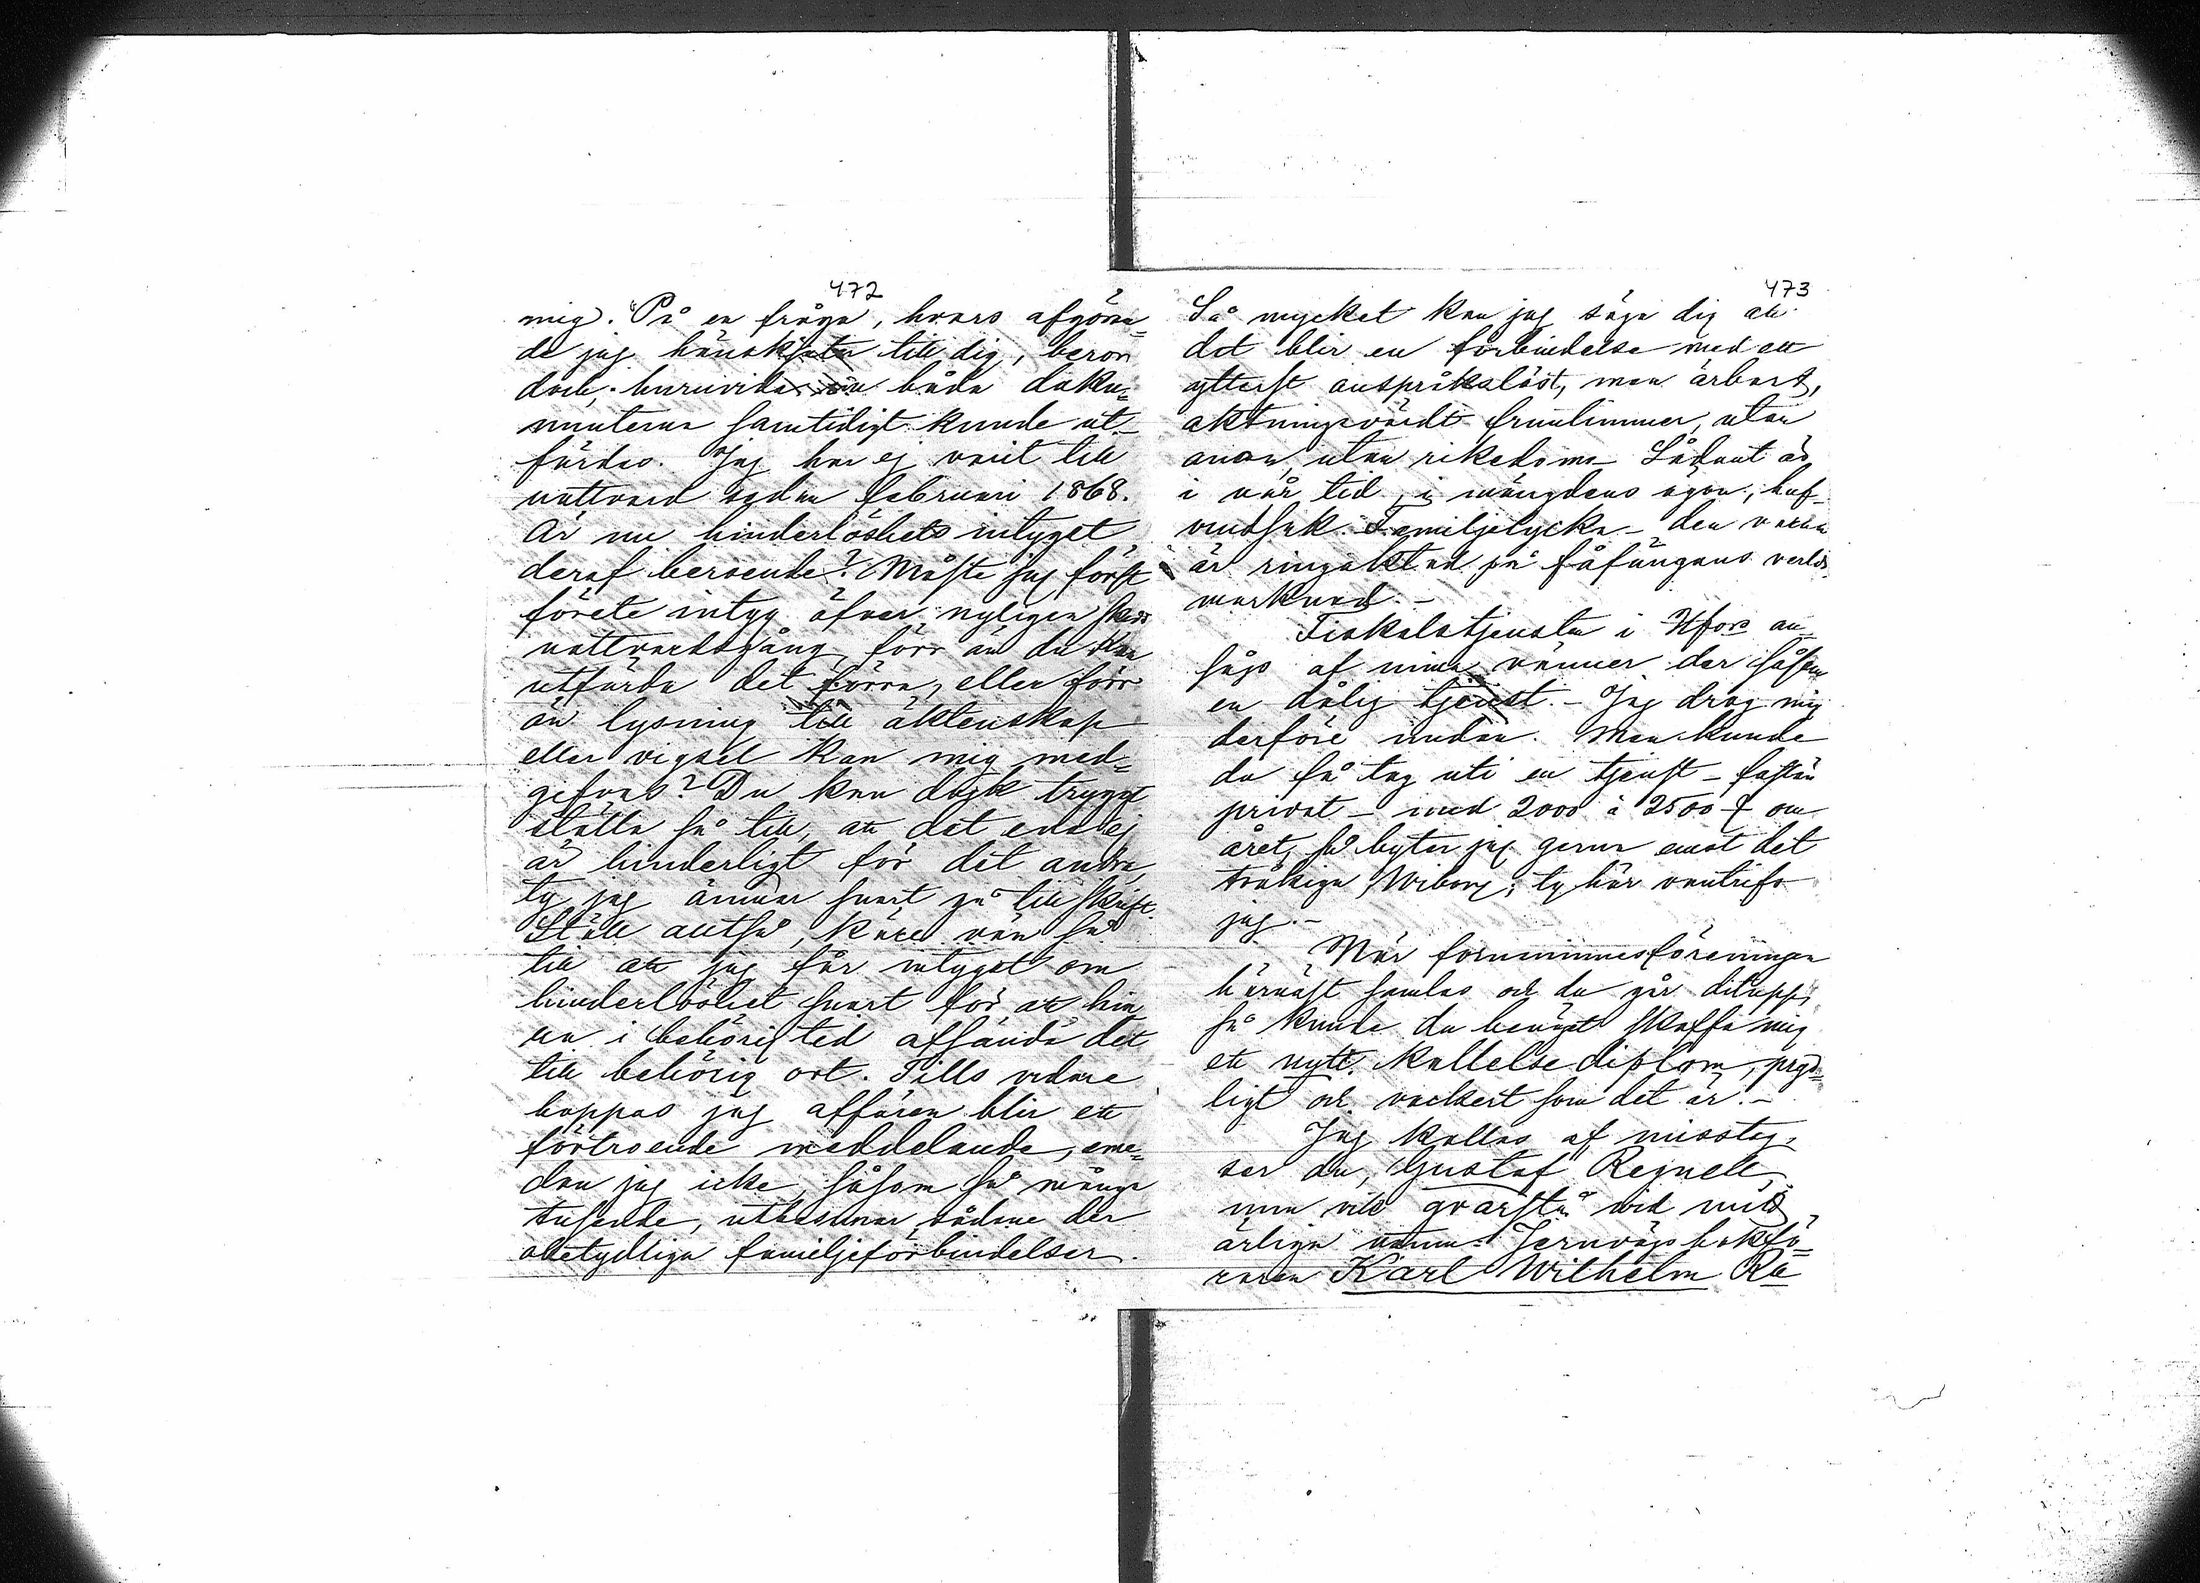 472
mig. "På en fråga, hvars afgöran=
de jag hänskjuter till dig, beror
dock, huruvida båda doku=
menterna samtidigt kunde ut-
färdas. Jag har ej varit till
nattvard sedan februari 1868.
Är nu hinderlöshets intyget
deraf beroende? Måste jag först
förete intyg öfver nyligen skedd
nattvardsgång, förr än du kan
utfärda det förra, eller förr
än lysning till äktenskap
eller vigsel kan mig med=
gifvas? Du kan dock tryggt
ställa så till, att det ena ej
är hinderligt för det andra,
ty jag ämnar snart gå till skrift.
Ställ alltså, käre vän så
till att jag får intyget om
hinderlöshet snart för att hin
na i behörig tid afsända det
till behörig ort. Tills vidare
hoppas jag affären blir ett
förtroende meddelande, eme=
dan jag icke, såsom så många
tusende, utbasunar sådane der
obetydliga familjeförbindelser.
473
Så mycket kan jag säga dig att
det blir en förbindelse med ett
ytterst anspråkslöst, men ärbart,
aktningsvärdt fruntimmer, utan
anor, utan rikedom. Sådant är
i vår tid, i mängdens ögon, huf-
vudsak. Familjelycka - den varan
är ringaktad på fåfängans verlds
marknad. -
Fiskalstjensten i Hfors an
sågs af mina vänner der såsom
en dålig tjenst. - Jag drog mig
derföre undan. Men kunde
du få tag uti en tjenst - fastän
privat - med 2000 à 2500 om
året, så byter jag gerna emot det
tråkiga Wiborg; ty här vantrifs
jag. -
När fornminnesföreningen
härnäst samlas och du går ditupp,
så kunde du benäget skaffa mig
ett nytt kallelse diplom, pryd=
ligt och vackert som det är. -
Jag kallas af misstag,
ser du, Gustaf Regnell,
men vill qvarstå vid mitt
ärliga namn: Jernvägs bokfö=
raren Karl Wilhelm Re